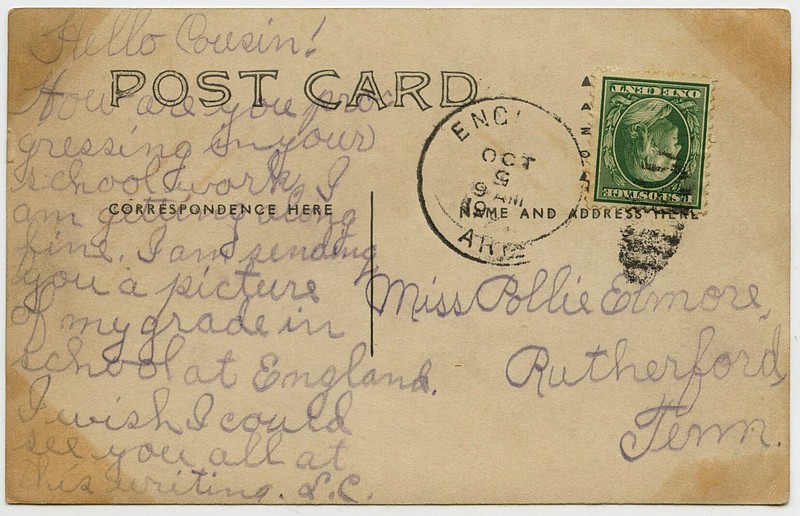 Hello Cousin!
POST CARD
How are you pro-
gressing in your
school work, I
am getting along
fine. I am sending
you a picture
of my grade in
school at England.
I wish I could
see you all at
this writing. L.C.
CORRESPONDENCE HERE
NAME AND ADDRESS HERE
ENGL
OCT
9
9 AM
ARK
U.S. POSTAGE
ONE CENT
Miss Pollie Elmore,
Rutherford,
Tenn.